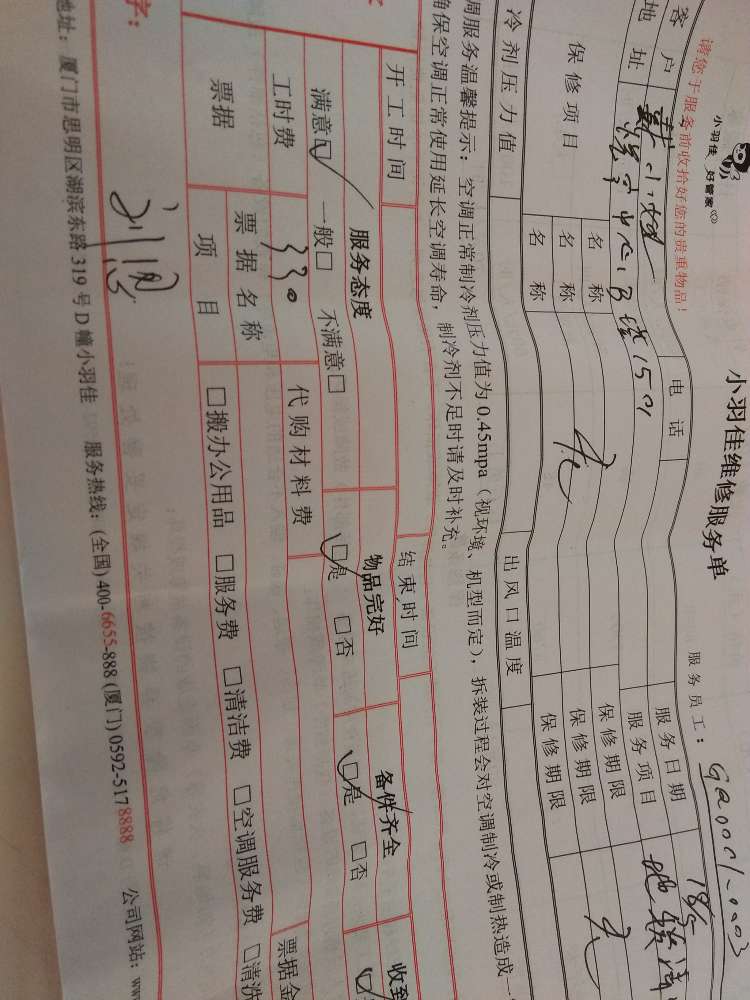 小羽佳 好管家
小羽佳维修服务单
请您于服务前收拾好您的贵重物品！
服务员工：
客户
电话
服务日期 18/5
地址
B 1501
服务项目
保修项目
名称
保修期限
名称
无
保修期限
无
名称
保修期限
冷剂压力值
出风口温度
调服务温馨提示：空调正常制冷剂压力值为0.45mpa（视环境、机型而定），拆装过程会对空调制冷或制热造成一
确保空调正常使用延长空调寿命，制冷剂不足时请及时补充。
开工时间
结束时间
服务态度
物品完好
备件齐全
收到
满意□ 一般□ 不满意□
□是 □否
□是 □否
工时费
330
代购材料费
票据
票据名称
票据金
项目
□搬办公用品 □服务费 □清洁费 □空调服务费 □清洗
字：
地址：厦门市思明区湖滨东路319号D幢小羽佳 服务热线：(全国)400-6655-888 (厦门)0592-5178888 公司网站：ww